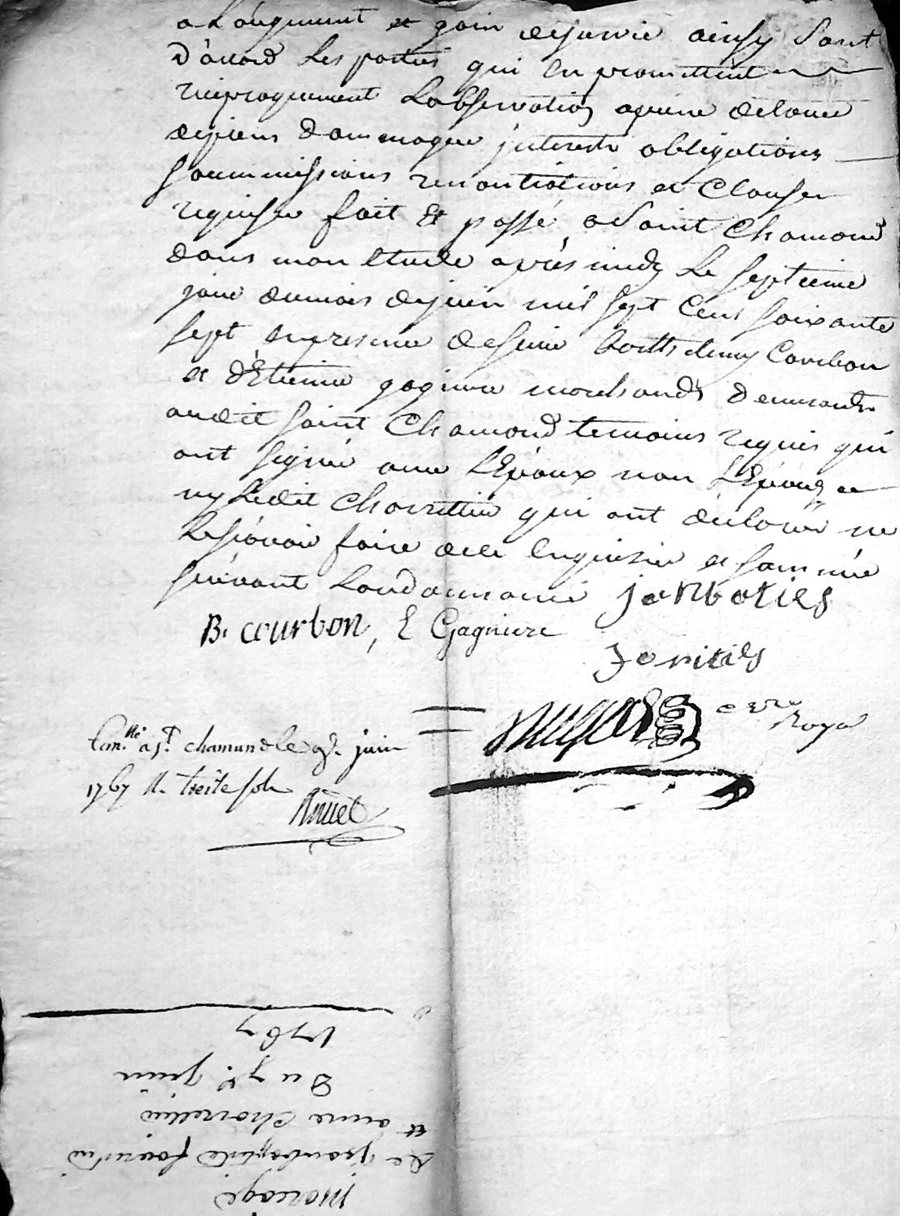 a Laugment et gain desurvie ainsy sont
D'accord Les parties qui En promettent
reciproquement Lobservation apeine detoutes
depens dommages jnterests obligations
soummissions renontiations et Clauses
requises fait Et passé aSaint Chamond
dans mon Etude après midy Le septieme
jour dumois dejuin mil sept Cens soixante
sept enpresence desieurs Barthelemy Courbon
et d'Etienne gagniere marchands demeurants
audit saint Chamond temoins requis qui
ont signé avec L'Epoux non L'Epouse
ny Ledit Chorrettin qui ont déclaré ne
Lesçavoir faire dece Enquis et sommés
suivant Lordonnance janbaties
B. courbon, E Gagniere
Con.lle a st. chamond le 9e. juin
1767 R. treize sols
Royal
mariage
De jeanbaptiste
Et anne Chorrettin
Du 7e. juin
1767